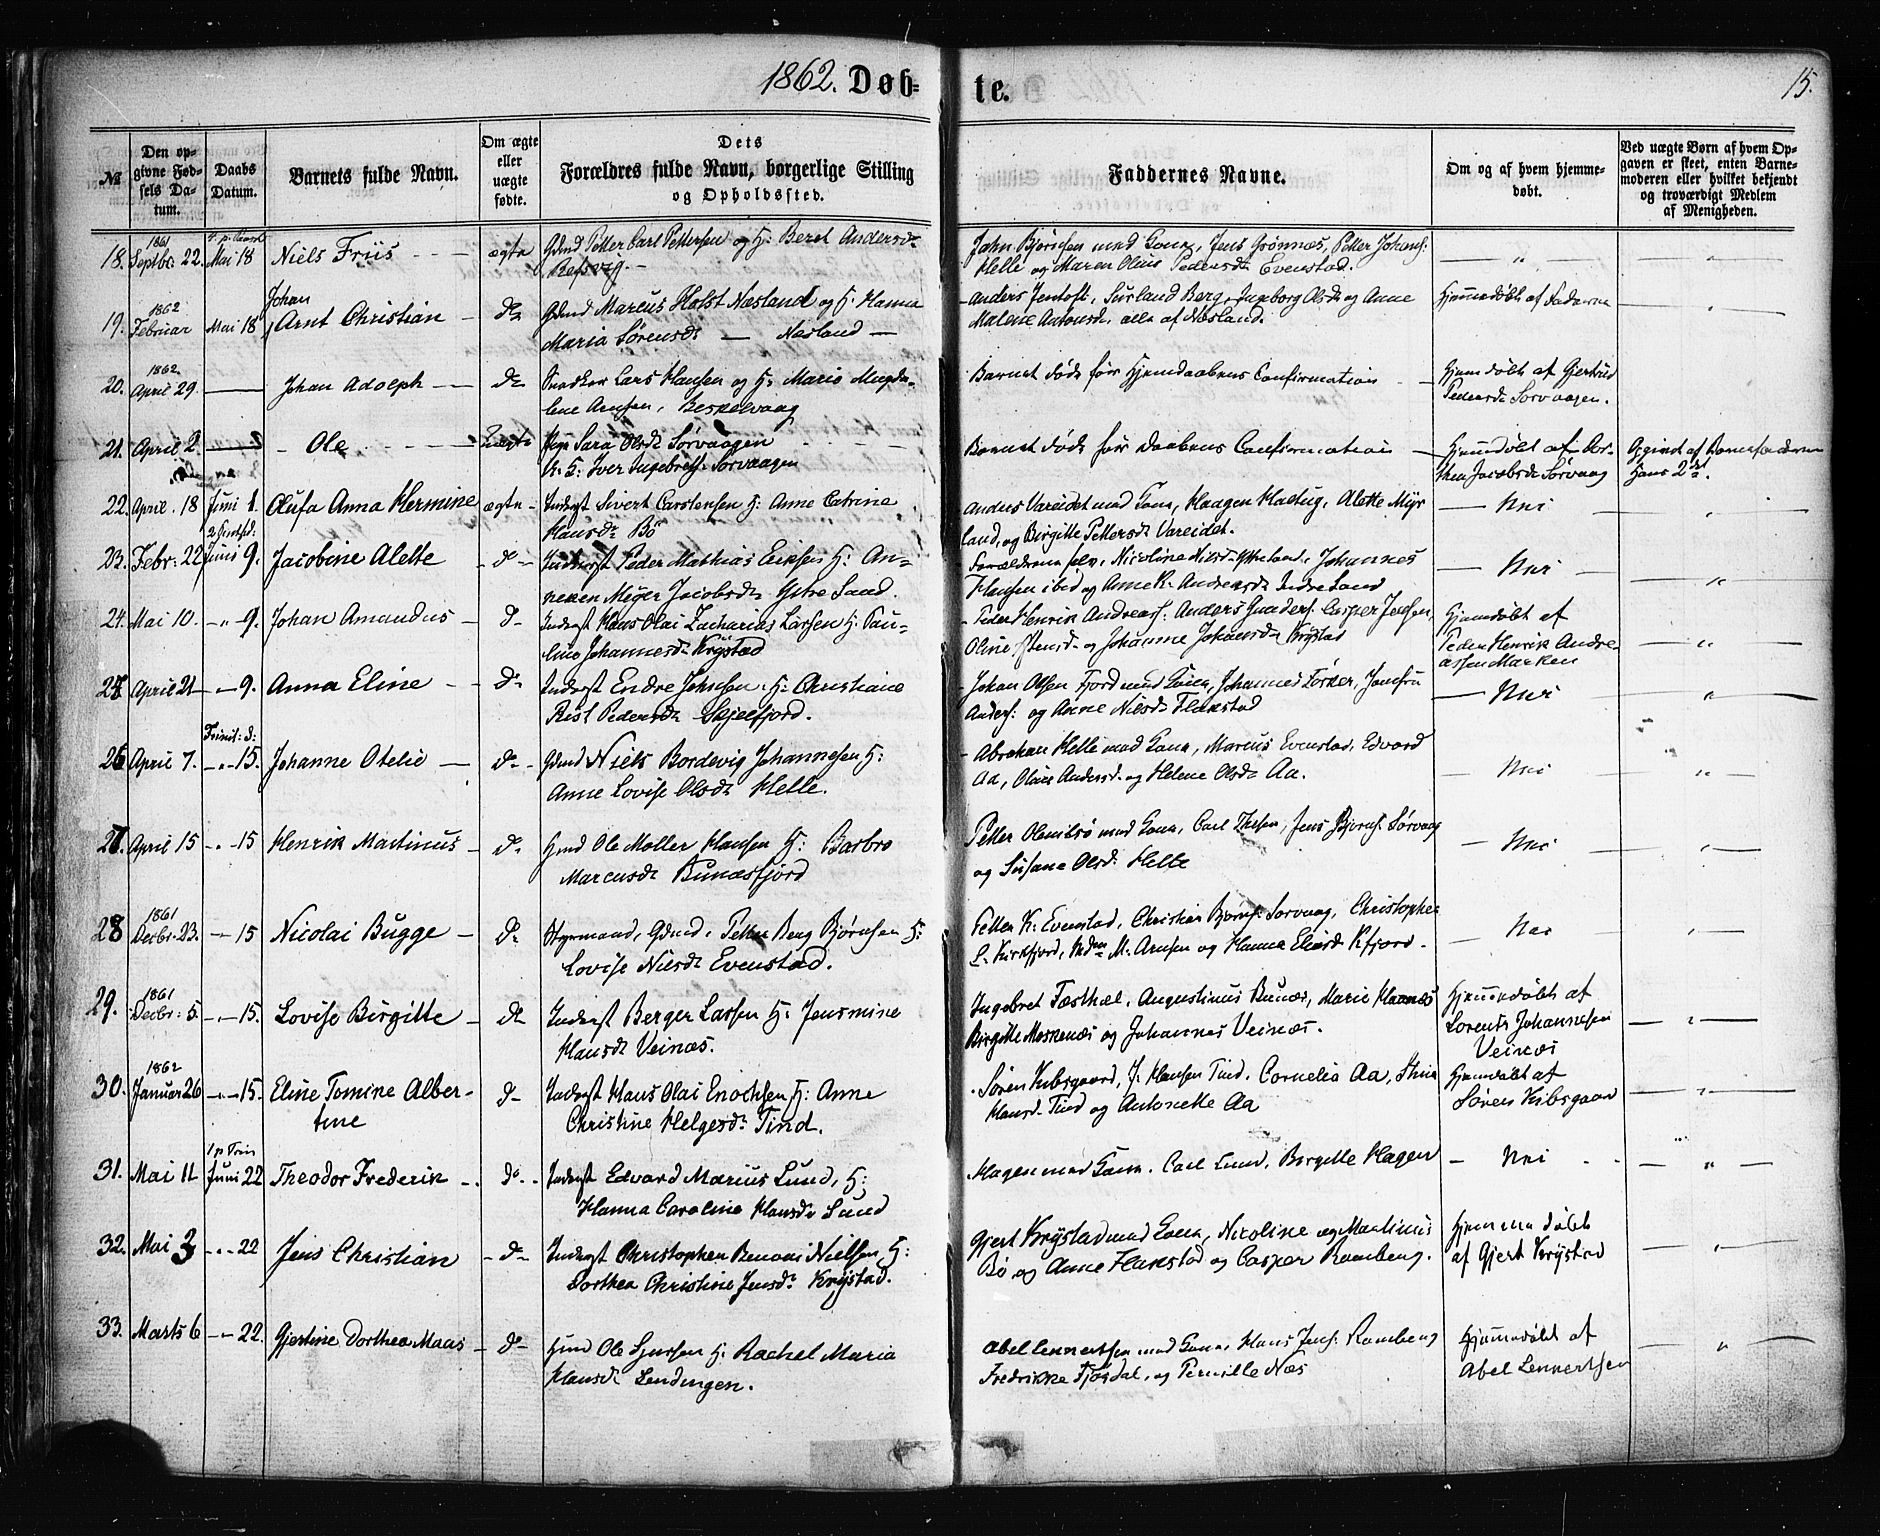 1862. Døb=
te.
15.
№
Den op-
givne Fød-
sels Da-
tum.
Daabs
Datum.
Barnets fulde Navn.
Om ægte
eller
uægte
fødte.
Dets
Forældres fulde Navn, borgerlige Stilling
og Opholdssted.
Faddernes Navne.
Om og af hvem hjemme-
døbt.
Ved uægte Børn af hvem Op-
gaven er skeet, enten Barne-
moderen eller hvilket bekjendt
og troværdigt Medlem
af Menigheden.
18. 1861 Septbr: 22. Mai 18 Niels Friis - - - ægte
Gdmd Petter Carl Pettersen og H: Beret Andersd:
Refsvig. -
John Bjørnsen med Kona, Jens Grønnæs, Petter Johans:
Helle og Maren Olius Pedersd: Evenstad.
19. 1862 Februar Mai 18 Johan Arnt Christian - do
Gdmd Marcus Holst Næsland og H: Hanna
Maria Sørensd: — Næsland —
Anders Jentoft, Surland Berg, Ingeborg Olsd: og Anne
Malene Antonsd: alle af Næsland.
Hjemmedøbt af Faderen
20. 1862 April 29. — Johan Adolph - - do
Snedker Lars Hansen og H: Marie Magda-
lene Arnsen, Reskelvaag
Barnet døde før Hjemdaabens Confirmation
Hjemdøbt af Gjertrud
Pedersd: Sørvaagen.
21. April 2. — Ole - - - - Uægte
Pige Sara Olsd: Sørvaagen
U. K: Iver Ingebrets: Sørvaagen
Barnet døde før Daabens Confirmation
Hjemmdøbt af Dor-
thea Jacobsd: Sørvaag
Opgivet af Barnefaderen
Hans 2det.
22. April 18 Juni 1. Olufa Anna Hermine ægte
Inderst Sivert Carstensen H: Anne Catrine
Hansd: Bø
Anders Vareidet med Kona, Haagen Hadug, Alette Myr
land, og Birgitte Pettersd: Vareidet.
— Nei —
23. Febr: 22 2 Pintsd: Juni 9. Jacobine Alette - do -
Inderst Peder Mathias Eriksen H: An-
neken Meyer Jacobsd: Ytre Sand.
Forældrene selv, Nicoline Nilsd: Ytresand, Johannes
Hansen ibid og Anne K. Andreasd: Indresand
— Nei —
24. Mai 10. - " - 9. Johan Amandus - do
Inderst Hans Olai Zacharias Larsen H: Pau-
line Johannesd: Krystad
Peder Henrik Andreas: Anders Gunders: Casper Jensen,
Oline Stensd: og Johanne Johansd: Krystad
Hjemdøbt af
Peder Henrik Andre-
assen Marken
25. April 21 - " - 9. Anna Eline - - do
Inderst Endre Johnsen, H: Christiane
Rist Pedersd: Skjelfjord.
Johan Olsen Fjord med Kona, Johannes Forker, Jomfru
Anders: og Anne Nilsd: Flakstad
— Nei —
26. April 7. Trinit: d: - " - 15. Johanne Otelie — do -
Gdmd Niels Bordevig Johannesen H:
Anne Lovise Olsd: Helle.
Abraham Helle med Kona, Marcus Evenstad, Edvard
Aa, Olave Andersd: og Helene Olsd: Aa.
— Nei —
27. April 15 - " - 15 Henrik Martinus - do
Hmd Ole Møller Hansen H: Barbro
Marcusd: Bunæsfjord
Petter Olenilsø med Kona, Carl Thesen, Jens Bjorns: Sørvaag
og Susane Olsd: Helle
— Nei —
28 1861 Decbr: 23. - " - 15 Nicolai Bugge - do
Styrmand, Gdmd. Petter Berg Bjørnsen H:
Lovise Nielsd: Evenstad.
Petter K: Evenstad, Christian Bjorns: Sørvaag, Christopher
L. Kirkfjord, Mdm M. Arnsen og Hanna Eliasd: Kfjord.
— Nei —
29. 1861 Decbr: 5. - " - 15. Lovise Birgitte - do
Inderst Berger Larsen H: Jensmine
Hansd: Veinæs.
Ingebret Fæsthæl, Augustinus Bunæs, Marie Hamnæs
Birgitte Moskenæs og Johannes Veinæs.
Hjemmedøbt af
Lorents Johannesen
Veinæs
30. 1862 Januar 26 - " - 15. Eline Tomine Alber-
tine do
Inderst Hans Olai Enochsen H: Anne
Christine Helgesd: Tind.
Søren Kibsgaard, J. Hansen Tind, Cornelia Aa, Stina
Hansd: Tind og Antonette Aa
Hjemdøbt af
Søren Kibsgaard
31. Mai 11 1 p Trin Juni 22 Theodor Frederik - do -
Inderst Edvard Marius Lund, H:
Hanna Caroline Hansd: Lund
Hagen med Kona. Carl Lund, Birgitte Hagen
- Nei -
32. Mai 3 - " - 22 Jens Christian - do -
Inderst Christopher Benoni Nielsen H:
Dorthea Christine Jensd: Krystad.
Gjert Krystad med Kona, Nicoline og Martinus
Bø og Anne Flakstad og Caspar Ramberg.
Hjemmedøbt
af Gjert Krystad
33. Marts 6 - " - 22. Gjertine Dorthea Maas - do -
Hmd Ole Sjursen H: Rachel Maria
Hansd: Lendingen.
Abel Lennertsen med Kona, Hans Jens: Ramberg
Fredrikke Fjøsdal, og Pernille Næs
Hjemmedøbt af
Abel Lennertsen